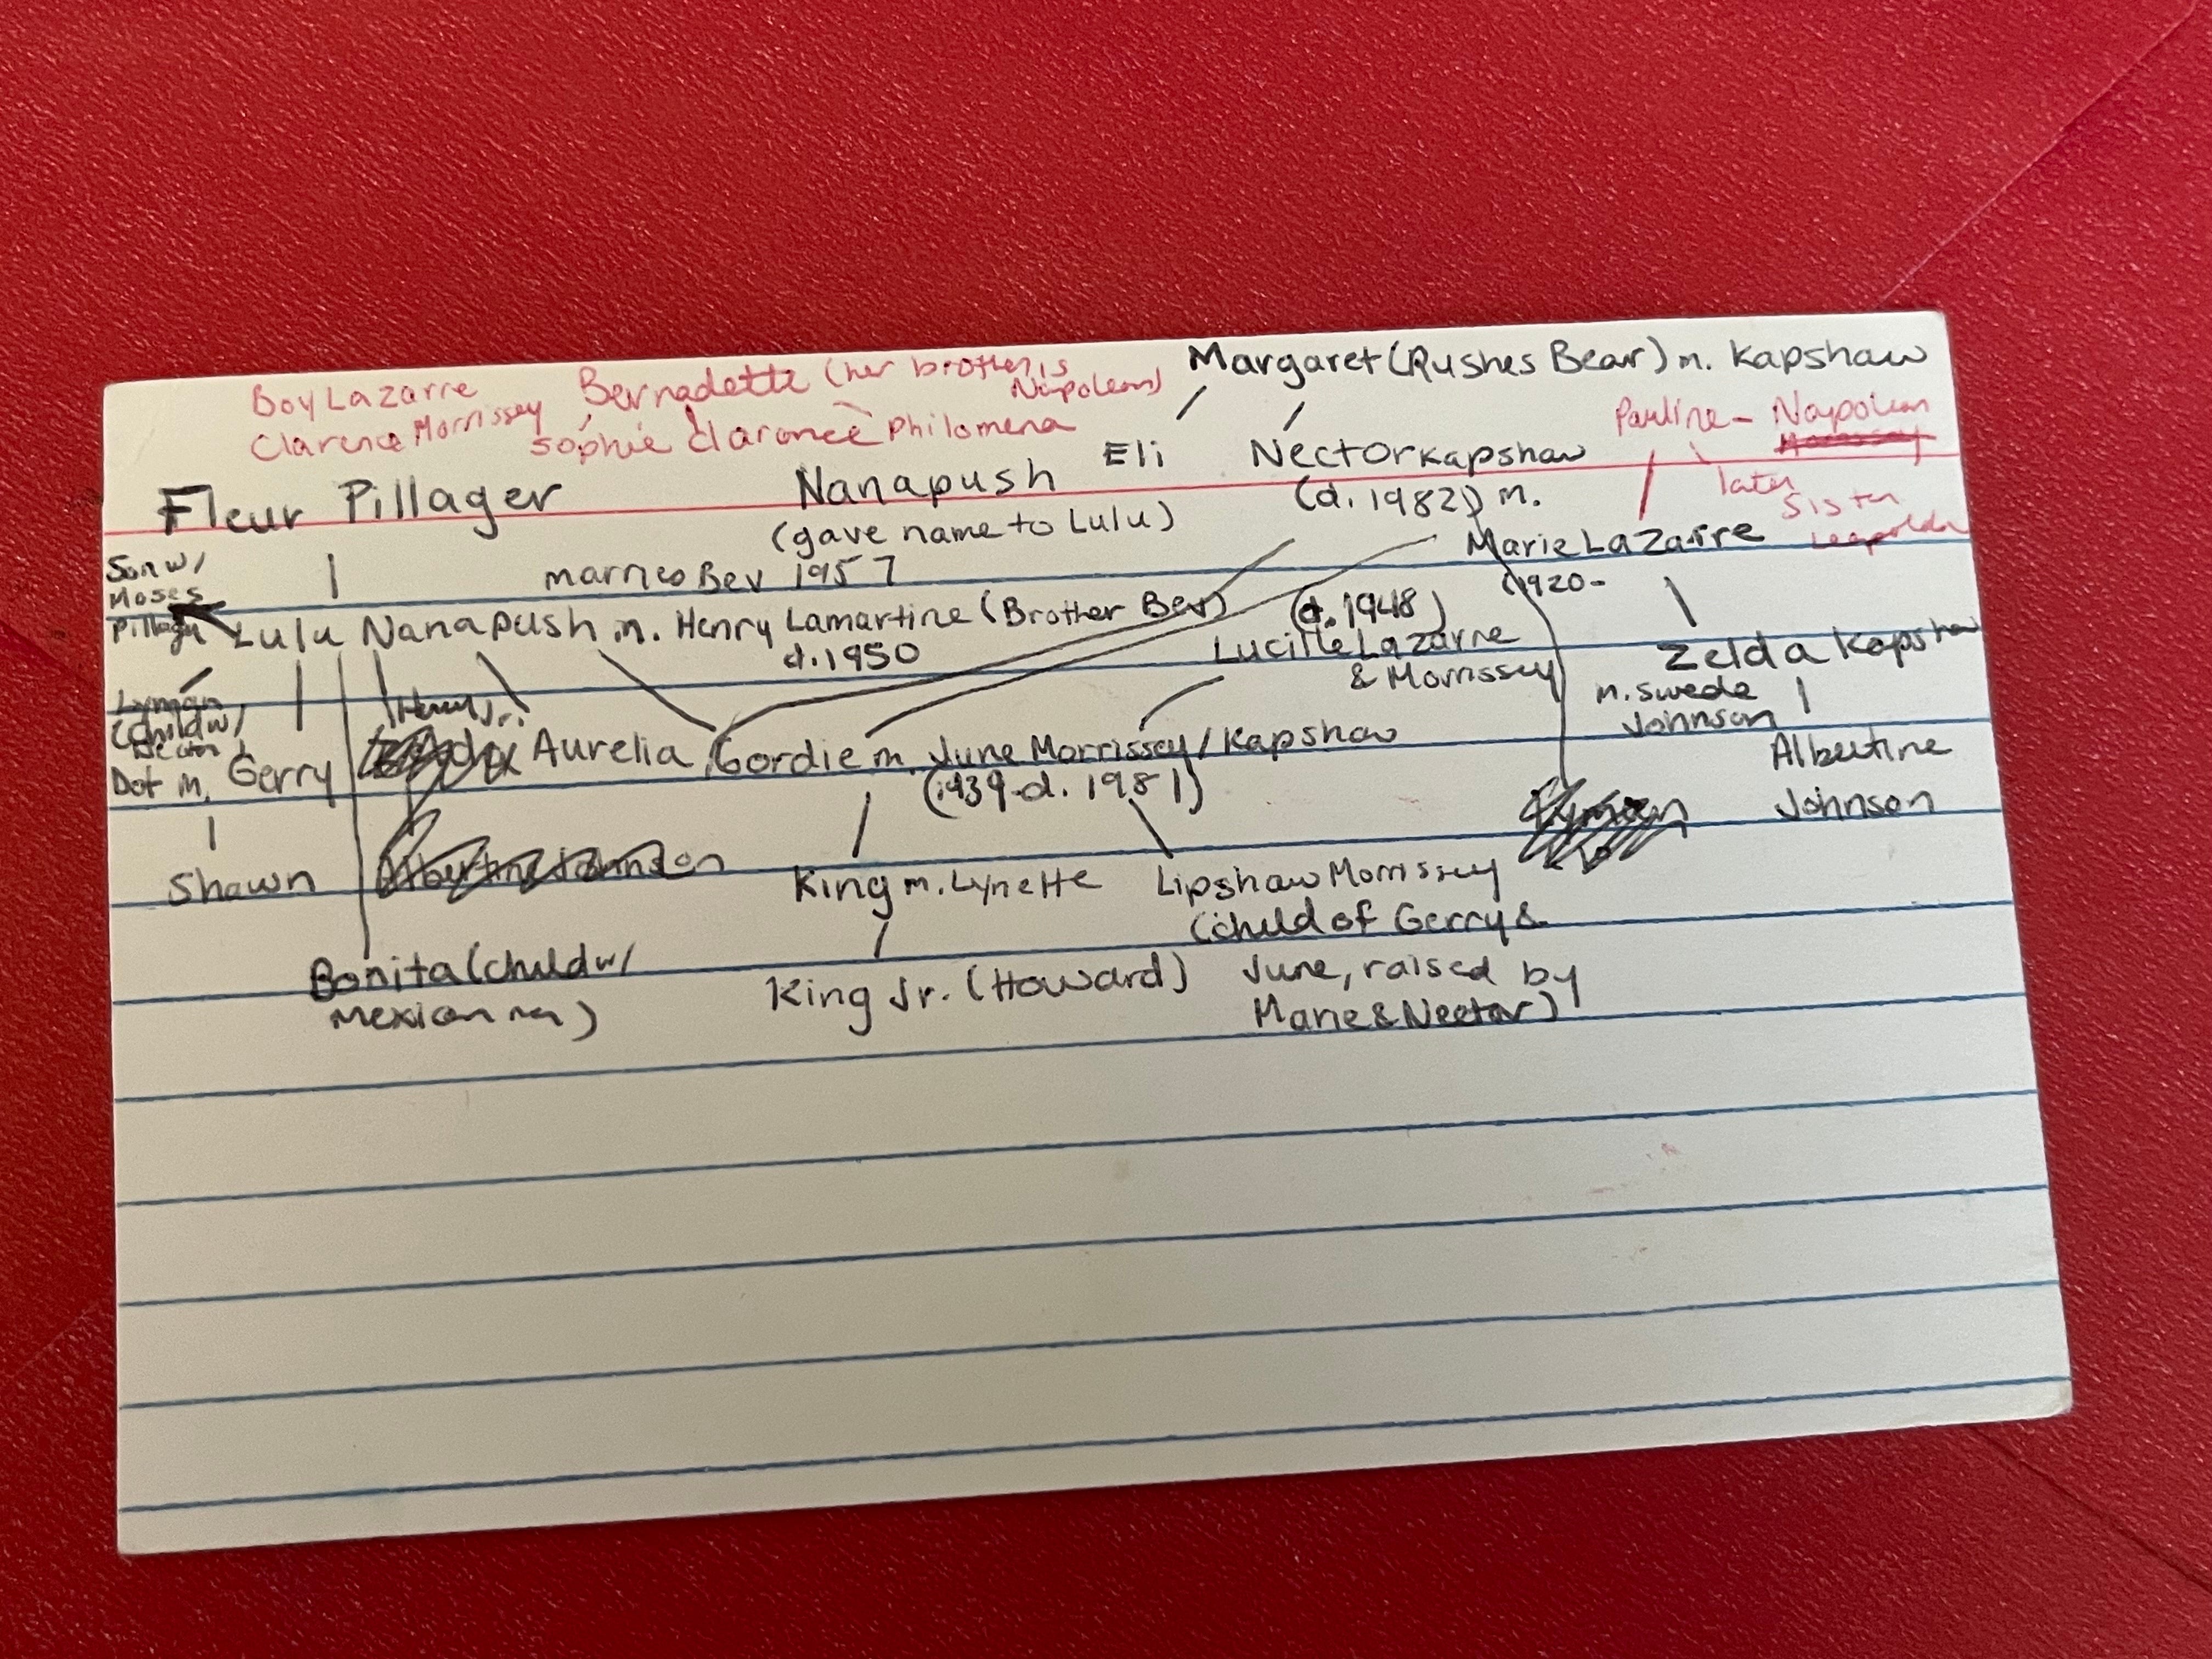 Margaret (Rushes Bear) m. Kapshaw
Boy Lazarre
Bernadette (her brother is
Napoleon)
Clarence Morrissey
Sophie Clarence Philomena
Pauline - Napoleon
Morrissey
Eli
Nector Kapshaw
later
Sister
Leopolda
Fleur Pillager
Nanapush
(d. 1982) m.
(gave name to Lulu)
Marie Lazarre
Son w/
Moses
Pillager
married Bev 1957
(1920-
Lulu Nanapush m. Henry Lamartine (Brother Bev)
d. 1950
(d. 1948)
Lucille Lazarre
& Morrissey
Zelda Kapshaw
m. Swede
Johnson
Lyman
(child w/
Nector)
Henry Jr.
Dot m. Gerry
Aurelia
Gordie m. June Morrissey / Kapshaw
(1939-d. 1981)
Albertine
Johnson
Lyman
Shawn
Albertine Johnson
King m. Lynette
Lipshaw Morrissey
(child of Gerry &
June, raised by
Marie & Nector)
Bonita (child w/
mexican man)
King Jr. (Howard)